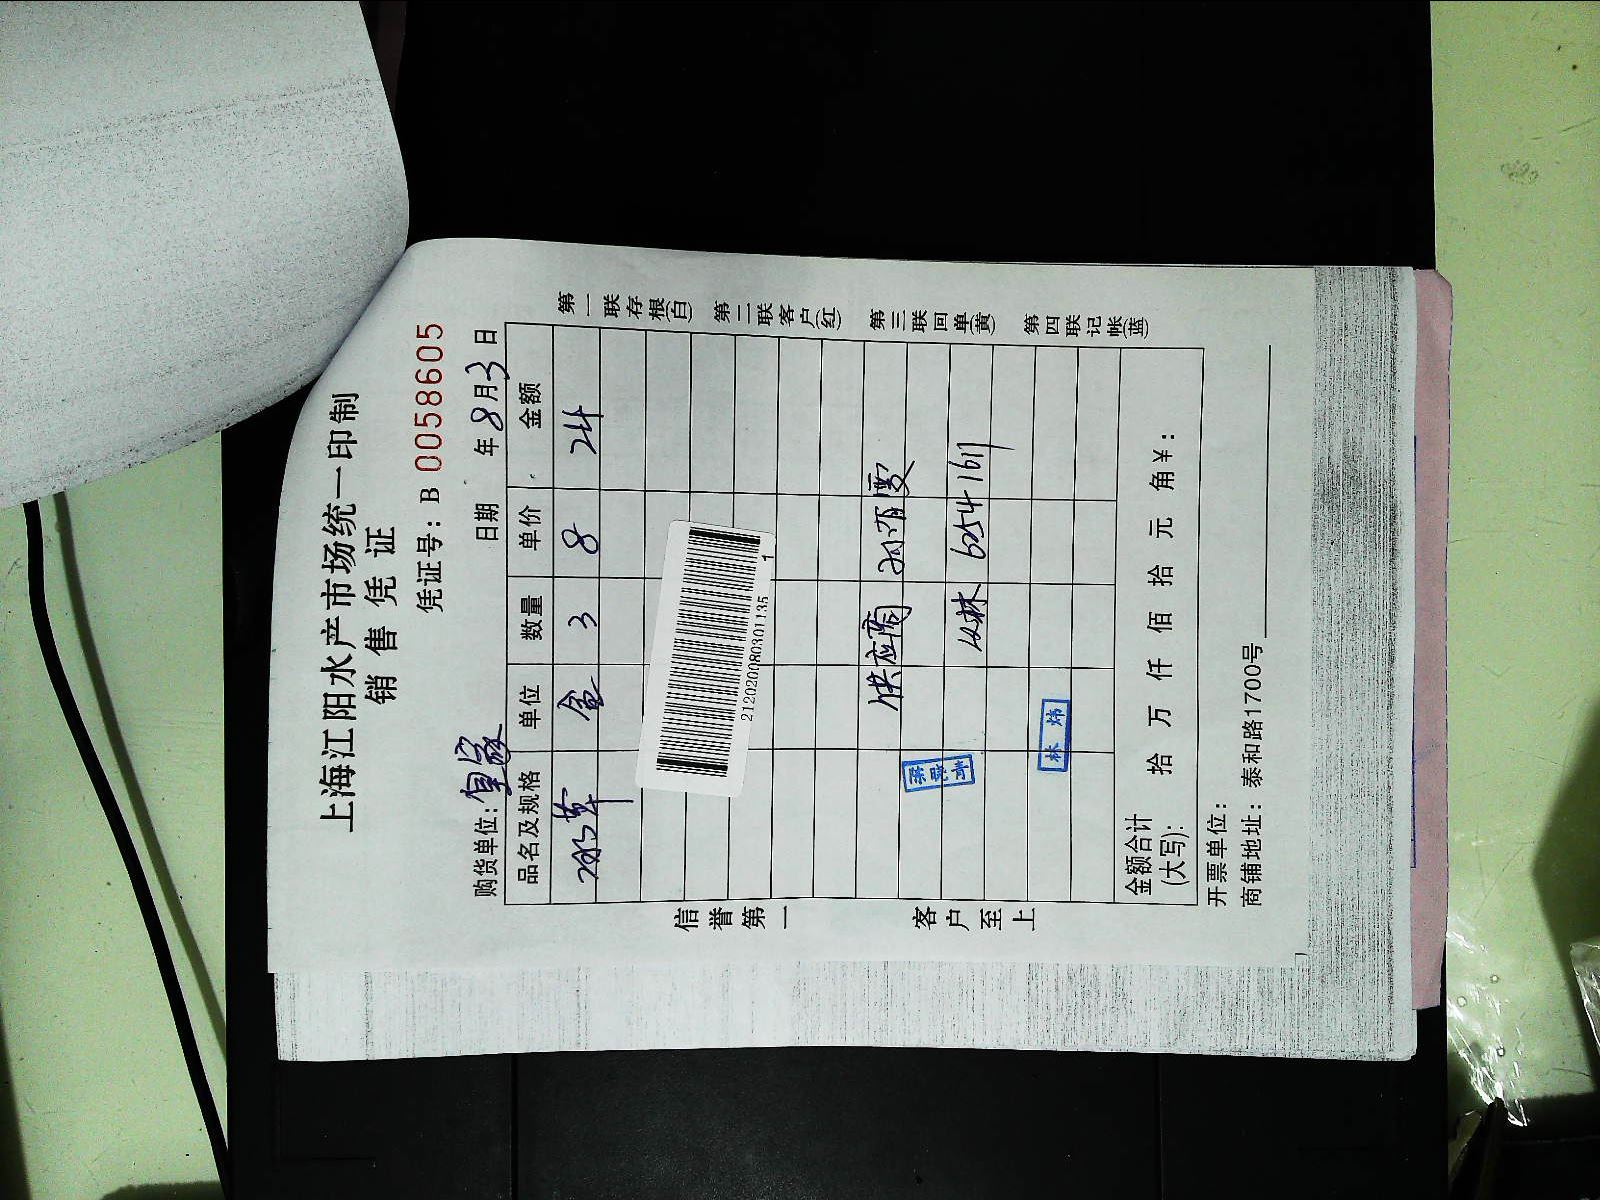 上海江阳水产市场统一印制
销售凭证
凭证号：B 0058605
购货单位： 日期 年8月3日
品名及规格 单位 数量 单价 金额
盒 3 8 24
2120200803011351
供应商
林 62541611
陈晓青
林炜
金额合计(大写)： 拾 万 仟 佰 拾 元 角¥：
开票单位：
商铺地址：泰和路1700号
信誉第一 客户至上
第一联存根(白) 第二联客户(红) 第三联回单(黄) 第四联记帐(蓝)